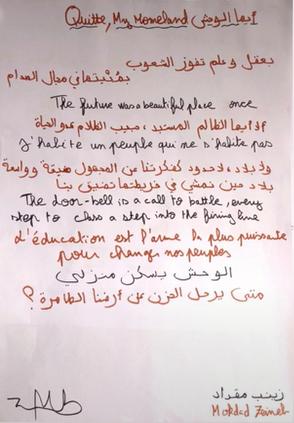 Quitte, My Homeland أيها الوحش
بعقل وعلم تفوز الشعوب
بمبتغاها في مجال الصدام
The future was a beautiful place once
ألا أيها الظالم المستبد، حبيب الظلام عدو الحياة
J'habite un peuple qui ne s'habite pas
ولا بلاد لا حدود كفكرتنا عن المجهول ضيقة وواسعة
بلاد حين نمشي في خريطتها تضيق بنا
The door-bell is a call to battle, every
step to class a step into the firing line
L'éducation est l'arme la plus puissante
pour changer nos peuples
الوحش يسكن منزلي
متى يرحل الحزن عن أرضنا الطاهرة؟
زينب مقداد
Mokdad Zeineb